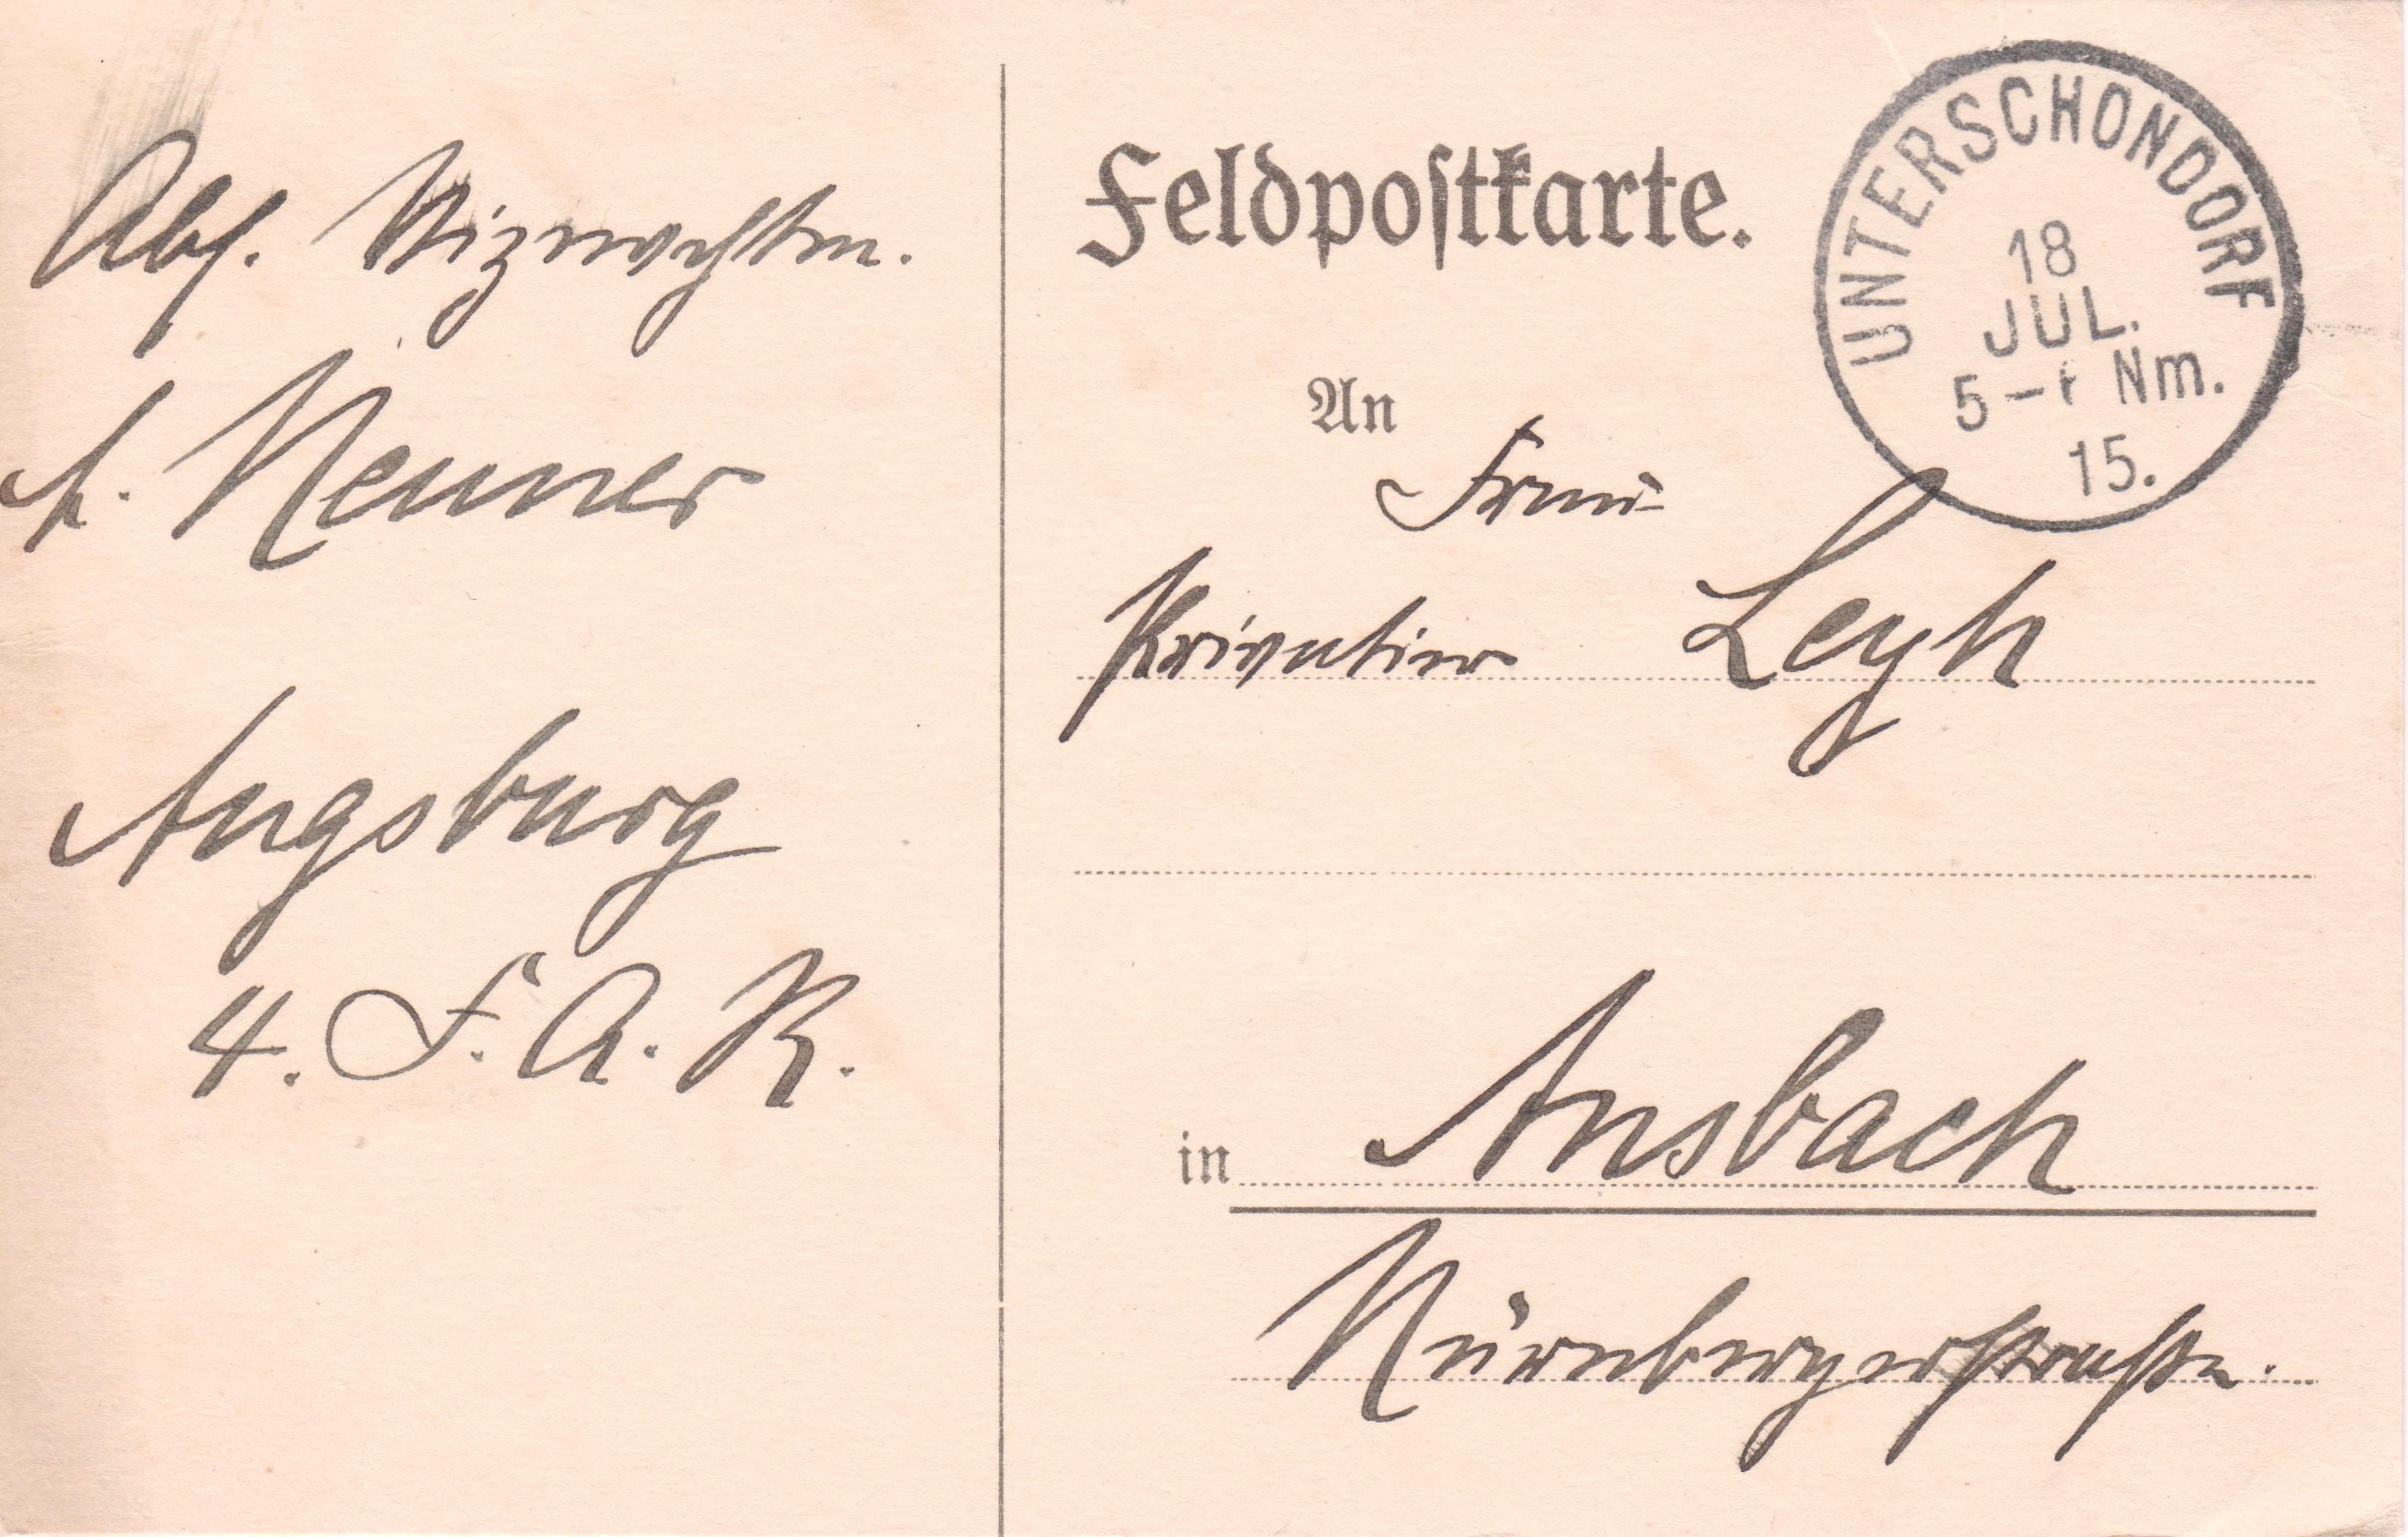 Abs. Vizewachtm.
A. Neuner
Augsburg
4. F. A. R.
Feldpostkarte.
UNTERSCHONDORF
18
JUL.
5- Nm.
15.
An
Frau
Privatier Leyh
in Ansbach
Nürnbergerstraße.